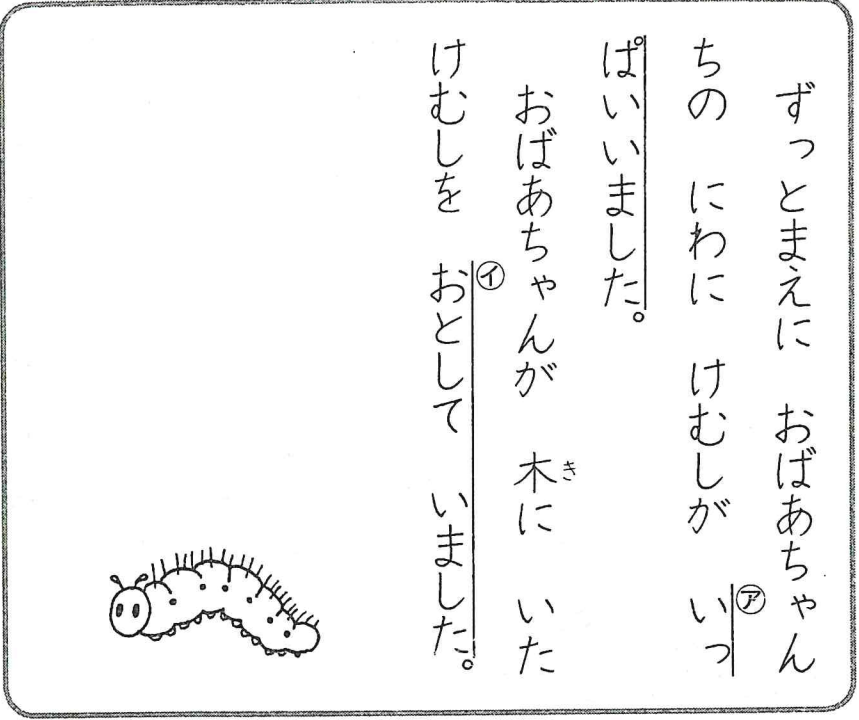 ずっとまえに　おばあちゃん
ちの　にわに　けむしが　㋐いっ
ぱいいました。
おばあちゃんが　木に　いた
き
けむしを　㋑おとして　いました。